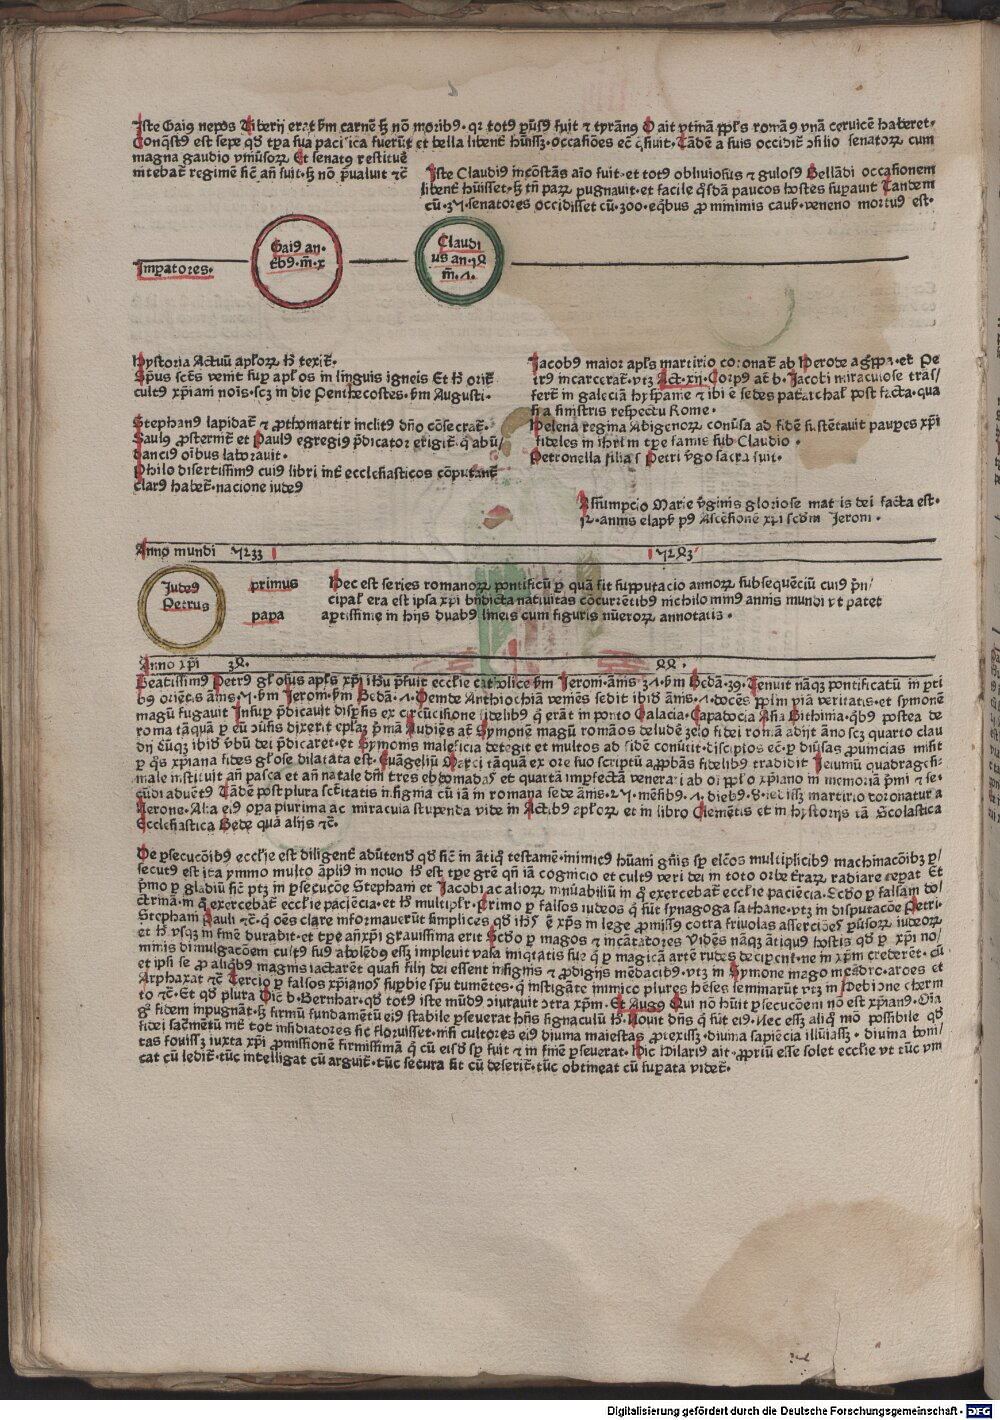 Iste Gaiꝰ nepos Tiberij erat ẜm carnē ẜꝫ nō moribꝰ· qꝛ totꝰ ꝑuūſꝰ fuit ⁊ tyrānꝰ Q ait vtinā ppl's romāꝰ vnā ceruicē haberet·
Conq̄ſtꝰ eſt ſepe qꝙ tꝑa ſua pacifica fuerūt et bella libent̄ huiſſꝫ·occaſiōes ec̄ q̄ſiuit·Tādē a ſuis occidit̄ ↄſilio ſenatoꝝ cum
magna gaudio vniuſoꝝ Et ſenatꝰ reſtituē
nitebat̄ regimē ſic̄ an̄ fuit·ẜꝫ nō p̄ualuit ⁊c̄
Iſte Claudiꝰ incōſtās aīo fuit·et totꝰ obliuioſus ⁊ guloſꝰ Bellādi occaſionem
libent̄ huiſſet·ẜꝫ tn̄ paꝝ pugnauit·et facile q̄ſdā paucos hoſtes ſuꝑauit Tandem
cū·3ⁿ·ſenatores occidiſſet cū·300·eq̄bus ꝓ minimis cauẜ·veneno mortuꝰ eſt·
Gaiꝰ an·
t̄bꝰ·m̄·x
Claudi
us an·1ꝝ
m̄·ʌ·
Imꝑatores·
Hyſtoria Actuū apl'oꝝ hꝭ texit̄·
Sp̄us ſct̄s venit ſuꝑ apl'os in linguis igneis Et hꝭ orit̄
cultꝰ xp̄iani noīs·ſcꝫ in die Penthecoſtes·ẜm Auguſti·
Stephanꝰ lapidat̄ ⁊ ꝓthomartir inclitꝰ dn̄o cōſecrat̄·
Saulꝰ ꝓſternit̄ et Paulꝰ egregiꝰ p̄dicator erigit̄ q̄ abū/
dancius oībus laborauit·
Philo diſertiſſimꝰ cuiꝰ libri int̄ eccleſiaſticos cōputant̄
clarꝰ habet̄·nacione iudeꝰ
Iacobꝰ maior apl's martirio coronat̄ ab Herode agrppa·et Pe
trꝰ incarcerat̄·vtꝫ Act·xij·Corpꝰ at̄ b·Iacobi miraculoſe trāſ/
fert̄ in galeciā hyſpanie ⁊ ibi ē ſedes patriarchal' poſt facta·qua
ſi a ſiniſtris reſpectu Rome·
Helena regina Adigenoꝝ conūſa ad fidē ſuſtētauit pauꝑes xp̄i
fideles in ihrl'm tꝑe famis ſub Claudio·
Petronella filia ſ Petri ṽgo ſacra fuit·
Aſſumpcio Marie ṽginis glorioſe matris dei facta eſt·
12·annis elapẜ pꝰ Aſcēſionē xp̄i ſcd'm Ieroni·
Anno mundi ꝩ233
ꝩ2ꝝ3
Iudeꝰ
Petrus
primus
papa
Hec eſt ſeries romanoꝝ pontificū ꝑ quā fit ſupputacio annoꝝ ſubſequēciū cuiꝰ p̄n/
cipal' era eſt ipſa xp̄i bn̄dicta natiuitas cōcurrētibꝰ nichilo minꝰ annis mundi vt patet
aꝑtiſſime in hijs duabꝰ lineis cum figuris nūeroꝝ annotatis·
Anno xp̄i 3ꝝ·
ꝝꝝ·
Beatiſſimꝰ Petrꝰ gl'oſus apl's xp̄i ih̄u p̄fuit eccl'ie catholice ẜm Ieroni·ānis 3ʌ·ẜm Bedā·39·Tenuit nāqꝫ pontificatū in ꝑti
bꝰ oriētis ānis·ꝩ·ẜm Ieroni·ẜm Bedā·ʌ·Deinde Anthiochiā veniēs ſedit ibiꝰ ānis·ʌ·docēs ppl'm viā veritatis·et ſymonē
magū fugauit Inſuꝑ p̄dicauit diſꝑſis ex circūciſione fidelibꝰ q̄ erāt in ponto Galacia·Capadocia Aſia Bithinia·q̄bꝰ poſtea de
roma tāquā ꝑ eū ↄuſis dixerit epl'aꝫ p̄mā Audiēs at̄ Symonē magū romāos deludē zelo fidei romā adijt āno ſcꝫ quarto clau
dij Eūqꝫ ibiꝰ ṽbū dei p̄dicaret·et Symonis maleficia detegit et multos ad fidē conūtit·diſciplos ec̄·ꝑ diūſas ꝓuincias miſit
ꝑ q̄s xp̄iana fides gl'oſe dilatata eſt·Euāgeliū Marci tāquā ex ore ſuo ſcriptū apꝓbās fidelibꝰ tradidit Ieiuniū quadrageſi-
male inſtituit an̄ paſca et an̄ natale dn̄i tres ebdomadas et quartā imꝑfectā venerari ab oī ppl'o xp̄iano in memoriā p̄mi ⁊ ſe·
cūdi aduētꝰ Tādē poſt plura ſct̄itatis inſignia cū iā in romana ſede ānis·2ꝩ·mēſibꝰ·ʌ·diebꝰ·8·ſediſſꝫ martirio coronatur a
Nerone·Alia eiꝰ oꝑa plurima ac miracula ſtupenda vide in Actibꝰ apl'oꝝ et in libro Clemētis et in hyſtorijs tā Scolaſtica
Eccleſiaſtica Bede quā alijs ⁊c̄·
De ꝑſecucōibꝰ eccl'ie eſt diligent̄ aduertendꝰ qꝙ ſic̄ in ātiq̄ teſtamē·inimicꝰ hūani gn̄is ſꝑ el'cōs multiplicibꝰ machinacōibꝫ ꝑ/
ſecutꝰ eſt ita ymmo multo āpliꝰ in nouo hꝭ eſt tꝑe gr̄e qn̄ iā cognicio et cultꝰ veri dei in toto orbe traꝝ radiare cepat Et
p̄mo ꝑ gladiū ſic̄ ptꝫ in ꝑſecucōe Stephani et Iacobi ac alioꝝ innūabiliū in q̄ exercebat̄ eccl'ie paciēcia·Scd'o ꝑ falſam do/
ctrinā·in q̄ exercebat̄ eccl'ie paciēcia·et hꝭ multipl'r·Primo ꝑ falſos iudeos q̄ ſūt ſynagoga ſathane·vtꝫ in diſputacōe Petri·
Stephani Pauli ⁊c̄·q̄ oēs clare informauerūt ſimplices qꝙ ih̄s ē xp̄s in lege ꝓmiſſꝰ cōtra friuolas aſſerciōes ꝑūſoꝝ iudeoꝝ
et hꝭ vſqꝫ in finē durabit·et tꝑe an̄xp̄i grauiſſima erit Scd'o ꝑ magos ⁊ incātatores Vidēs nāqꝫ ātiquꝰ hoſtis qꝙ ꝑ xp̄i no/
minis diuulgacōem cultꝰ ſuꝰ abolēdꝰ eſſꝫ impleuit vaſa iniq̄tatis ſue q̄ ꝑ magicā artē rudes deciꝑent·ne in xp̄m crederēt·cū
et ipſi ſe ꝓ aliq̄bꝰ magnis iactarēt quaſi filij dei eſſent inſignijs ⁊ ꝓdigijs mēdacibꝰ·vtꝫ in Symone mago menādro·aroes et
Arphaxat ⁊c̄ Tercio ꝑ falſos xp̄ianos ſuꝑbie ſpū tumētes·q̄ inſtigāte inimico plures heſes ſeminarūt vtꝫ in Hebione cherin
to ⁊c̄·Et qꝙ plura Dic̄ b·Bernhar·qꝙ totꝰ iſte mūdꝰ ↄiurauit ↄtra xp̄m·Et Augꝰ Qui nō hūit ꝑſecucōem nō eſt xp̄ianꝰ·Oīa
gͦ fidem impugnāt·ẜꝫ firmū fundamētū eiꝰ ſtabile ꝑſeuerat hn̄s ſignaculū hꝭ·Nouit dn̄s q̄ ſūt eiꝰ·Nec eſſꝫ aliq̄ mō poſſibile qꝙ
fidei ſac̄mētū int̄ tot inſidiatores ſic floruiſſet·niſi cultores eiꝰ diuina maieſtas ꝓtexiſſꝫ·diuina ſapiēcia illūiaſſꝫ·diuina boni/
tas fouiſſꝫ iuxta xp̄i ꝓmiſſionē firmiſſimā q̄ cū eiſd' ſꝑ fuit ⁊ in finē ꝑſeuerat·Hic Hilariꝰ ait·ꝓpriū eſſe ſolet eccl'ie vt tūc vin
cat cū ledit̄·tūc intelligat cū arguit̄·tūc ſecura ſit cū deſerit̄·tūc obtineat cū ſuꝑata videt̄·
Digitalisierung gefördert durch die Deutsche Forschungsgemeinschaft - DFG